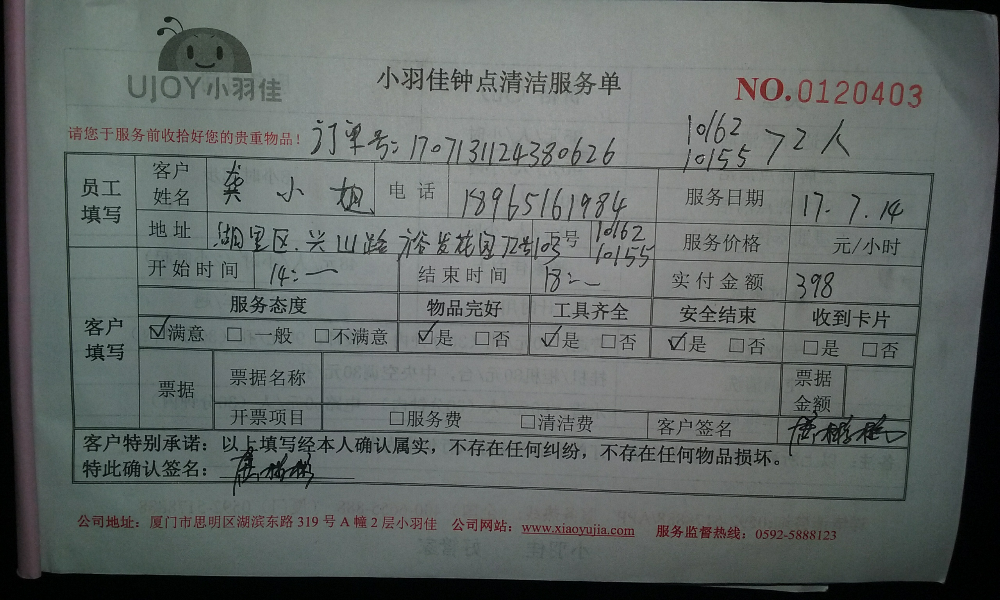 UJOY小羽佳
小羽佳钟点清洁服务单
NO.0120403
请您于服务前收拾好您的贵重物品！
订单号：1707131124380626
10162
10155 > 2人
员工填写 客户姓名 龚小姐 电话 18965161984 服务日期 17.7.14
地址 湖里区.兴山路裕发花园 103 工号 10162 10155 服务价格 元/小时
开始时间 14:一 结束时间 18:一 实付金额 398
客户填写 服务态度 物品完好 工具齐全 安全结束 收到卡片
☑满意 □一般 □不满意 ☑是 □否 ☑是 □否 ☑是 □否 □是 □否
票据 票据名称 票据金额
开票项目 □服务费 □清洁费 客户签名
客户特别承诺：以上填写经本人确认属实，不存在任何纠纷，不存在任何物品损坏。
特此确认签名：
公司地址：厦门市思明区湖滨东路 319 号 A 幢 2 层小羽佳 公司网站：www.xiaoyujia.com 服务监督热线：0592-5888123